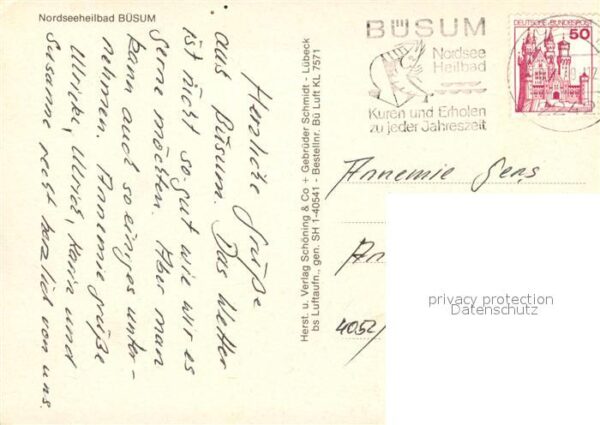 Nordseeheilbad BÜSUM
Herzliche Grüße
aus Büsum. Das Wetter
ist nicht so gut wie wir es
gerne möchten. Aber man
kann auch so einiges unter-
nehmen. Annemie grüße
Ulricki, Ullrich, Karin und
Susanne recht herzlich von uns.
Herst. u. Verlag Schöning & Co + Gebrüder Schmidt - Lübeck
bs Luftaufn., gen. SH 1-40541 - Bestellnr. Bü Luft KL 7571
BÜSUM
Nordsee
Heilbad
Kuren und Erholen
zu jeder Jahreszeit
DEUTSCHE BUNDESPOST
50
Annemie Gens
An
4052/
privacy protection
Datenschutz